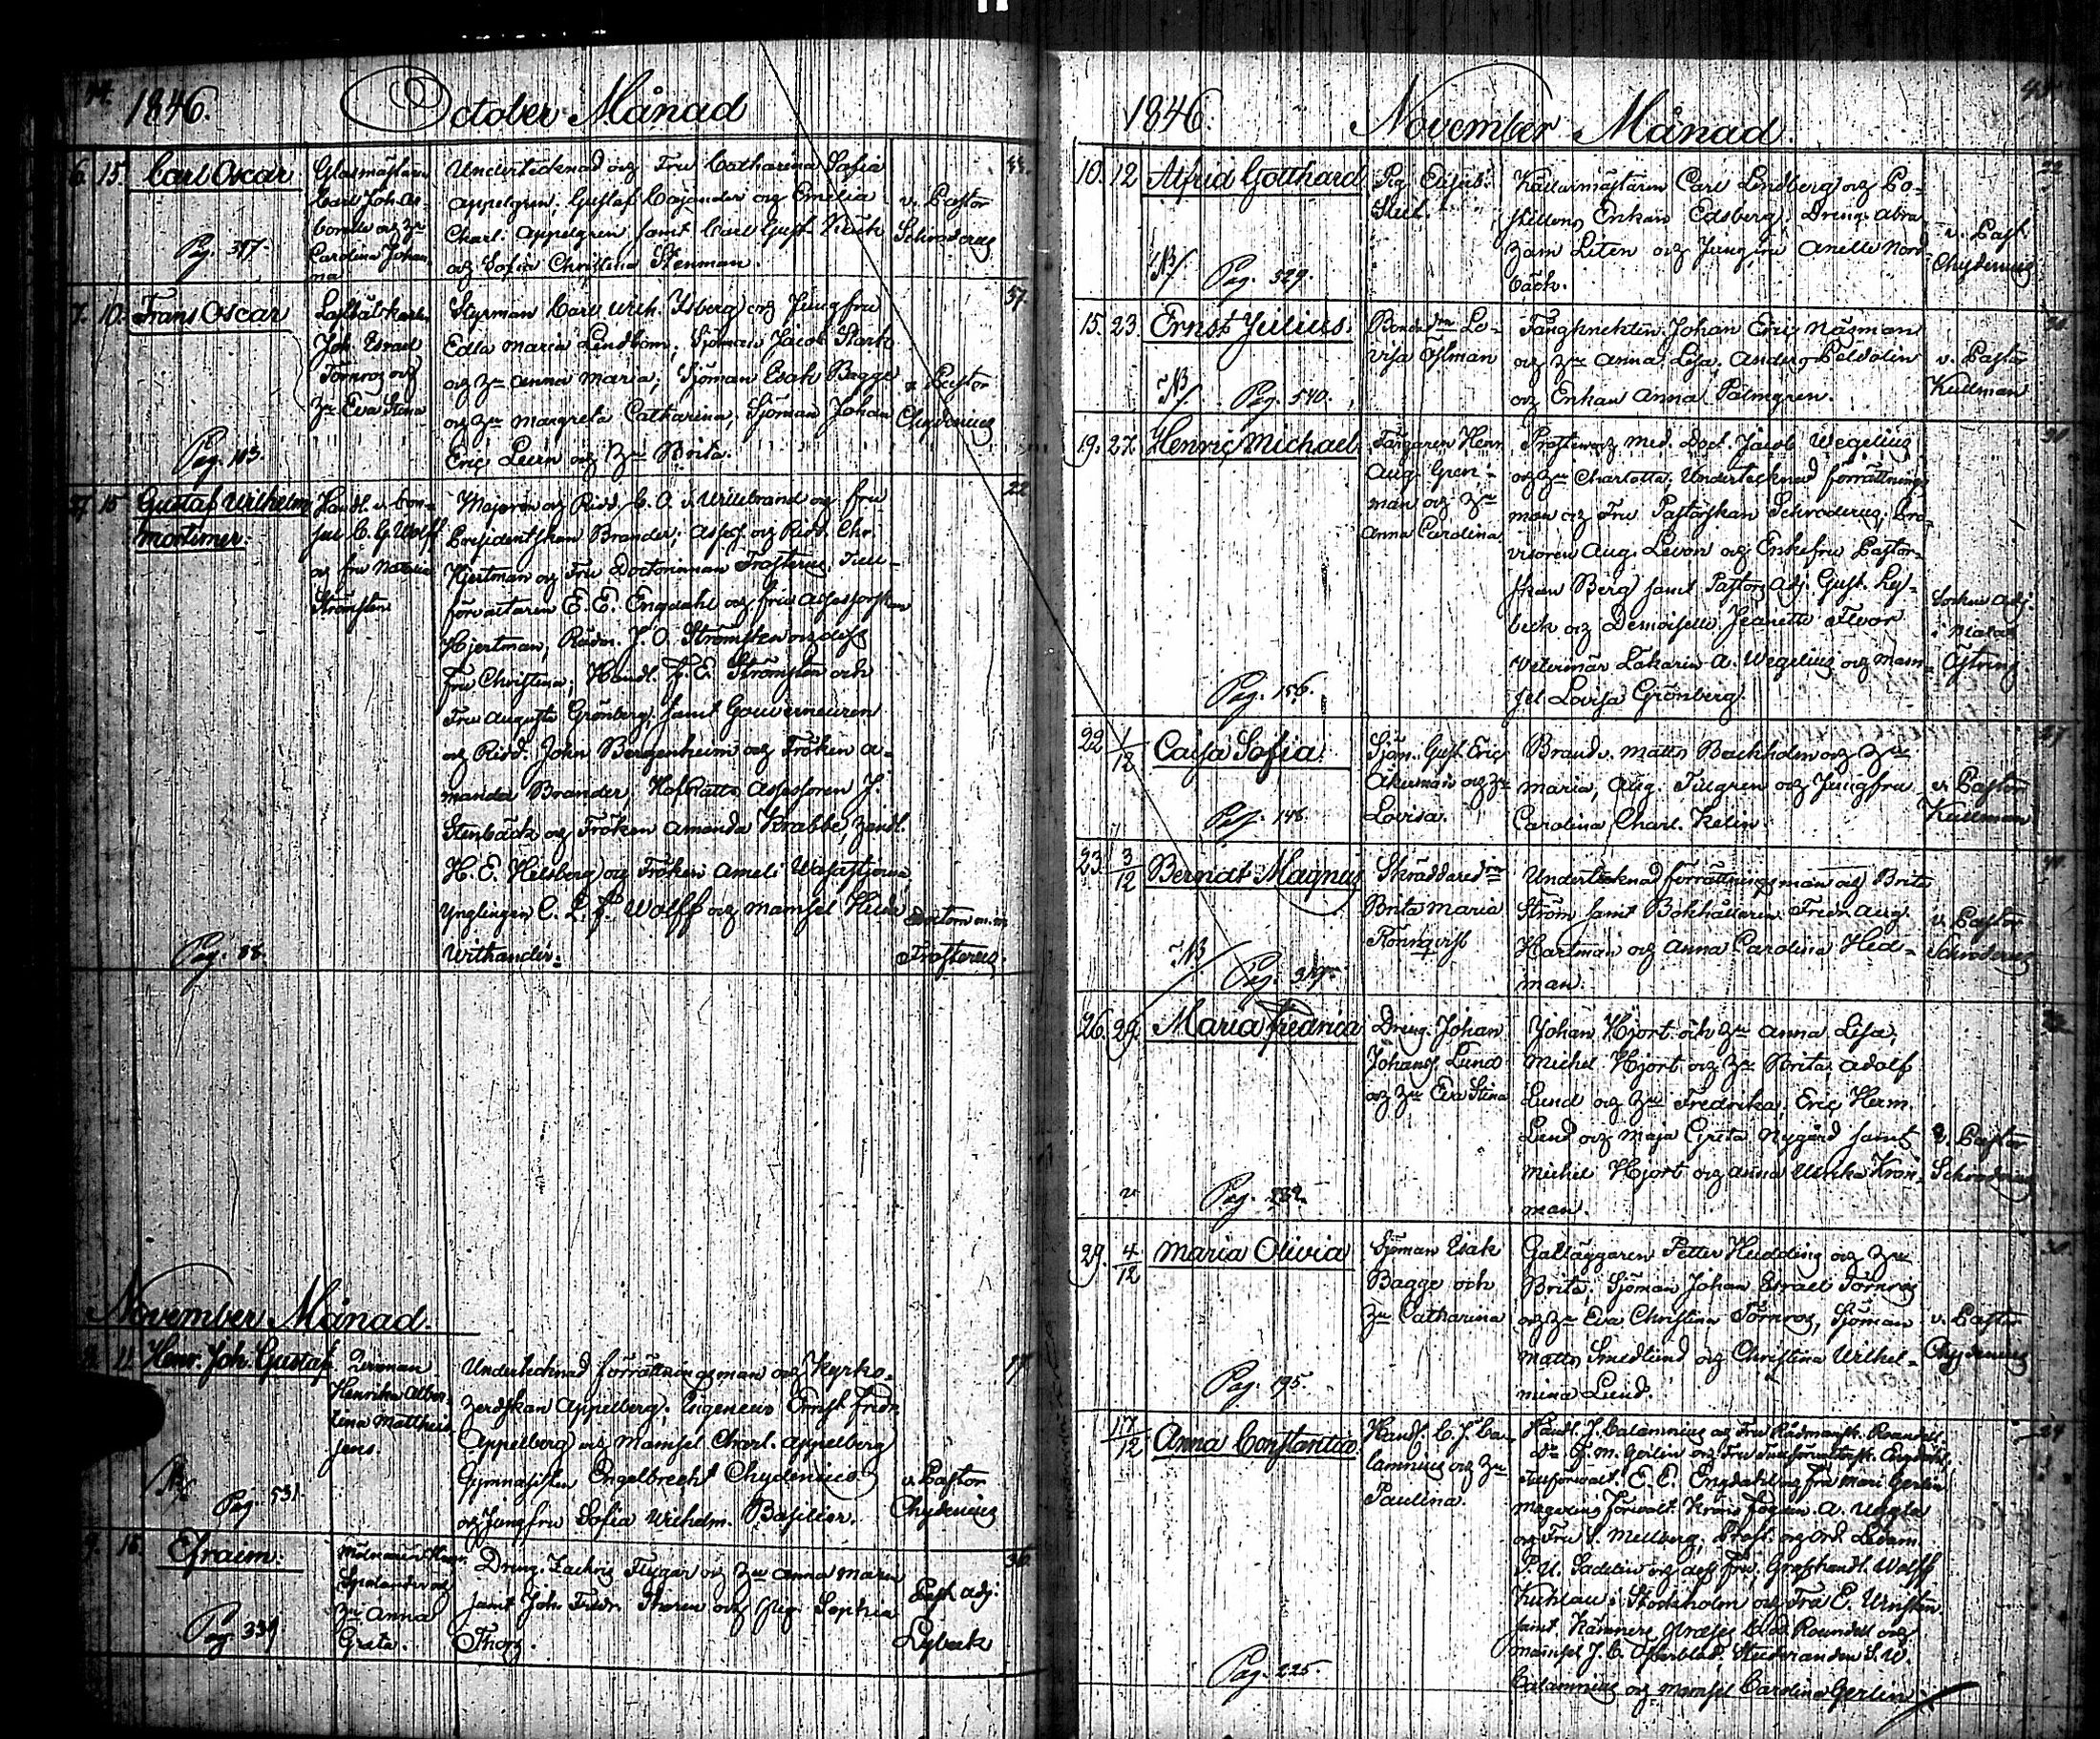 44.
1846. October Månad
6. 15. Carl Oscar
Pag. 397.
Glasmästaren
Carl Joh.
och Hu
Carolina Johan
na
Undertecknad och Fru Catharina Sofia
Appelgren, Gustaf Cajander och Emelia
Charl. Appelgren samt Carl Gust.
och Sofia Christina Stenman.
v. Pastor
Schroderus
7. 10. Frans Oscar
Pag. 103.
Joh. Esrael
Törnroos och
Hu Eva Stina
Styrman Carl Wilh. Ysberg och Jungfru
Edla Maria Lindbom, Sjöman Jacob Stark
och Hu Anna Maria; Sjöman Esak Bagge
och Hu Margreta Catharina, Sjöman Johan
Eric Leurn och Hu Brita.
v. Pastor
Chydenius
37.
27 15 Gustaf Wilhelm
Mortimer.
Pag. 88.
Handl. v. Con-
sul C. G. Wolff
och fru Natalia
Strömsten
Majoren och Ridd. C. O. v. Willebrand och fru
Presidentskan Brander; Assess. och Ridd. Chr.
Hjertman och Fru Doctorinnan Frosterus, Tull-
förvaltaren E. E. Engdahl och fru Assessorskan
Hjertman, Rådm. J. O. Strömsten och dess
fru Christina; Handl. F. E. Strömsten och
Fru Augusta Grönberg; samt Gouverneuren
och Ridd. John Bergenheim och Fröken A-
manda Brander, HofRätts Assessoren J.
Stenbäck och Fröken Amanda Krabbe, Handl.
H. E. Helsberg och Fröken Ameli Wasastjerna,
Ynglingen C. L. F. Wolff och Mamsel Hilda
Wirthander.
Doctorn m.m.
Frosterus.
22
November Månad.
11. Henr. Joh. Gustaf
Pag. 531.
Qvinnan
Henrika Alber-
tina Matthei-
sens.
Undertecknad förrättningsman och Kyrko-
herdskan Appelberg, Ingenieur Ernst Fredr.
Appelberg och Mamsel Charl. Appelberg
Gymnasisten Engelbrecht Chydenius
och Jungfru Sofia Wilhelm. Basilier.
v. Pastor
Chydenius
9. 16. Efraim.
Pag. 339
Hu Anna
Greta.
Dreng. Zachris Flygar och Hu Anna Maria
samt Joh. Fredr. Thoren och Pig. Sophia
Thors.
Past. Adj.
Lybeck
36.
1846. November Månad.
10. 12 Alfrid Gotthard
NB/ Pag. 529.
Pig. Elisab.
Källarmästaren Carl Lindberg och Po-
stillions Enkan Edsberg; Dreng. Abra-
ham Liten och Jungfru Anette Nord-
bäck.
v. Past.
Chydenius
15. 23. Ernst Julius.
NB/ Pag. 540.
Bonded:n Lo-
visa Östman
Fångknekten Johan Eric Näsman
och Hu Anna Lisa, Anders Peldolin
och Enkan Anna Palmgren.
v. Pastor
Kullman
19. 27. Henric Michael
Pag. 156.
Färgaren Henr.
Aug. Gren-
man och Hu
Anna Carolina
Prosten och Med. Doct. Jacob Wegelius
och Hu Charlotta; Undertecknad förrättnings-
man och Fru Pastorskan Schroderus; Pro-
visoren Aug. Levon och Enkefru Pastor-
skan Berg samt Pastors Adj. Gust. Ly-
beck och Demoiselle Jeanette Floor
Veterinär Läkaren A. Wegelius och Mam-
sel Lovisa Grönberg.
Socken Adj.
i Malax
Östring
22 1/12 Caisa Sofia.
Pag. 148.
Sjöm. Gust. Eric
Åkerman och Hu
Lovisa.
Brandv. Matts Backholm och Hu
Maria, Aug. Tillgren och Jungfru
Carolina Charl. Kelin.
v. Pastor
Kullman
23. 3/12 Berndt Magnus
NB/ Pag. 317.
Skräddared:n
Brita Maria
Rönnqvist
Undertecknad förrättningsman och Brita
Ström samt Bokhållaren Fredr. Aug.
Hartman och Anna Carolina Hed-
man.
v. Pastor
Schroderus
26. 29. Maria Fredrica
Pag. 232.
Dreng. Johan
Johans. Lund
och Hu Eva Stina
Johan Hjort och Hu Anna Lisa;
Michel Hjort och Hu Brita, Adolf
Lund och Hu Fredrika; Eric Herm.
Lund och Maja Greta Nygård samt
Michel Hjort och Anna Ulrika Krön-
man.
v. Pastor
Schroderus
29. 4/12 Maria Olivia
Pag. 195.
Sjöman Esak
Bagge och
Hu Catharina
Galeäggaren Petter Hedding och Hu
Brita; Sjöman Johan Esrael Törnroos
och Hu Eva Christina Törnroos, Sjöman
Matts Smedlund och Christina Wilhel-
mina Lund.
v. Pastor
Chydenius
30.
17/12 Anna Constantia.
Pag. 225.
Handl. C. J. Ca-
lamnius och Hu
Paulina.
Handl. J. Calamnius och Fru Rådmansk.
J. M. Gerlin och Fru Tullförvaltarsk. Engdahl,
Tullförvalt. E. E. Engdahl och fru Mari Gerlin
Magasins Förvalt. Krono Fogden A. Uggla
och Fru S. Mellberg, Prost. och Ord. Ledam.
P. U. Sadelin och dess fru; Grosshandl. Wolff
Kuhlau i Stockholm och Fru E.
samt
Mamsel J. C. Österblad, Studeranden S. W.
Calamnius och Mamsel Carolina Gerlin